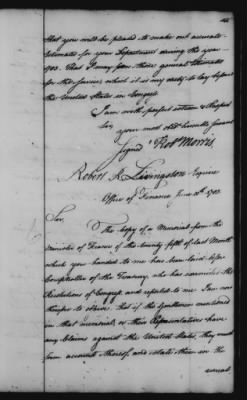 that you would be pleased to make out accurate
Estimates for your Department during the year
1783. That I may form those general Estimates
for the Service which it is my duty to lay before
the United States in Congress
I am with perfect esteem & Respect
Sir,
your most obed. humble Servant
Signed Rob Morris
Robert R Livingston Esquire
Office of Finance June 1782
Sir,
The Copy of a Memorial from the
Minister of France of the twenty fifth of last Month
which you handed to me has been laid before
Comptroller of the Treasury, who has examined the
Resolutions of Congress and reported to me I am
therefore to observe that if the Gentlemen mentioned
in that memorial or their Representatives have
any Claims against the United States, they must
from accounts thereof, and state them in the
usual